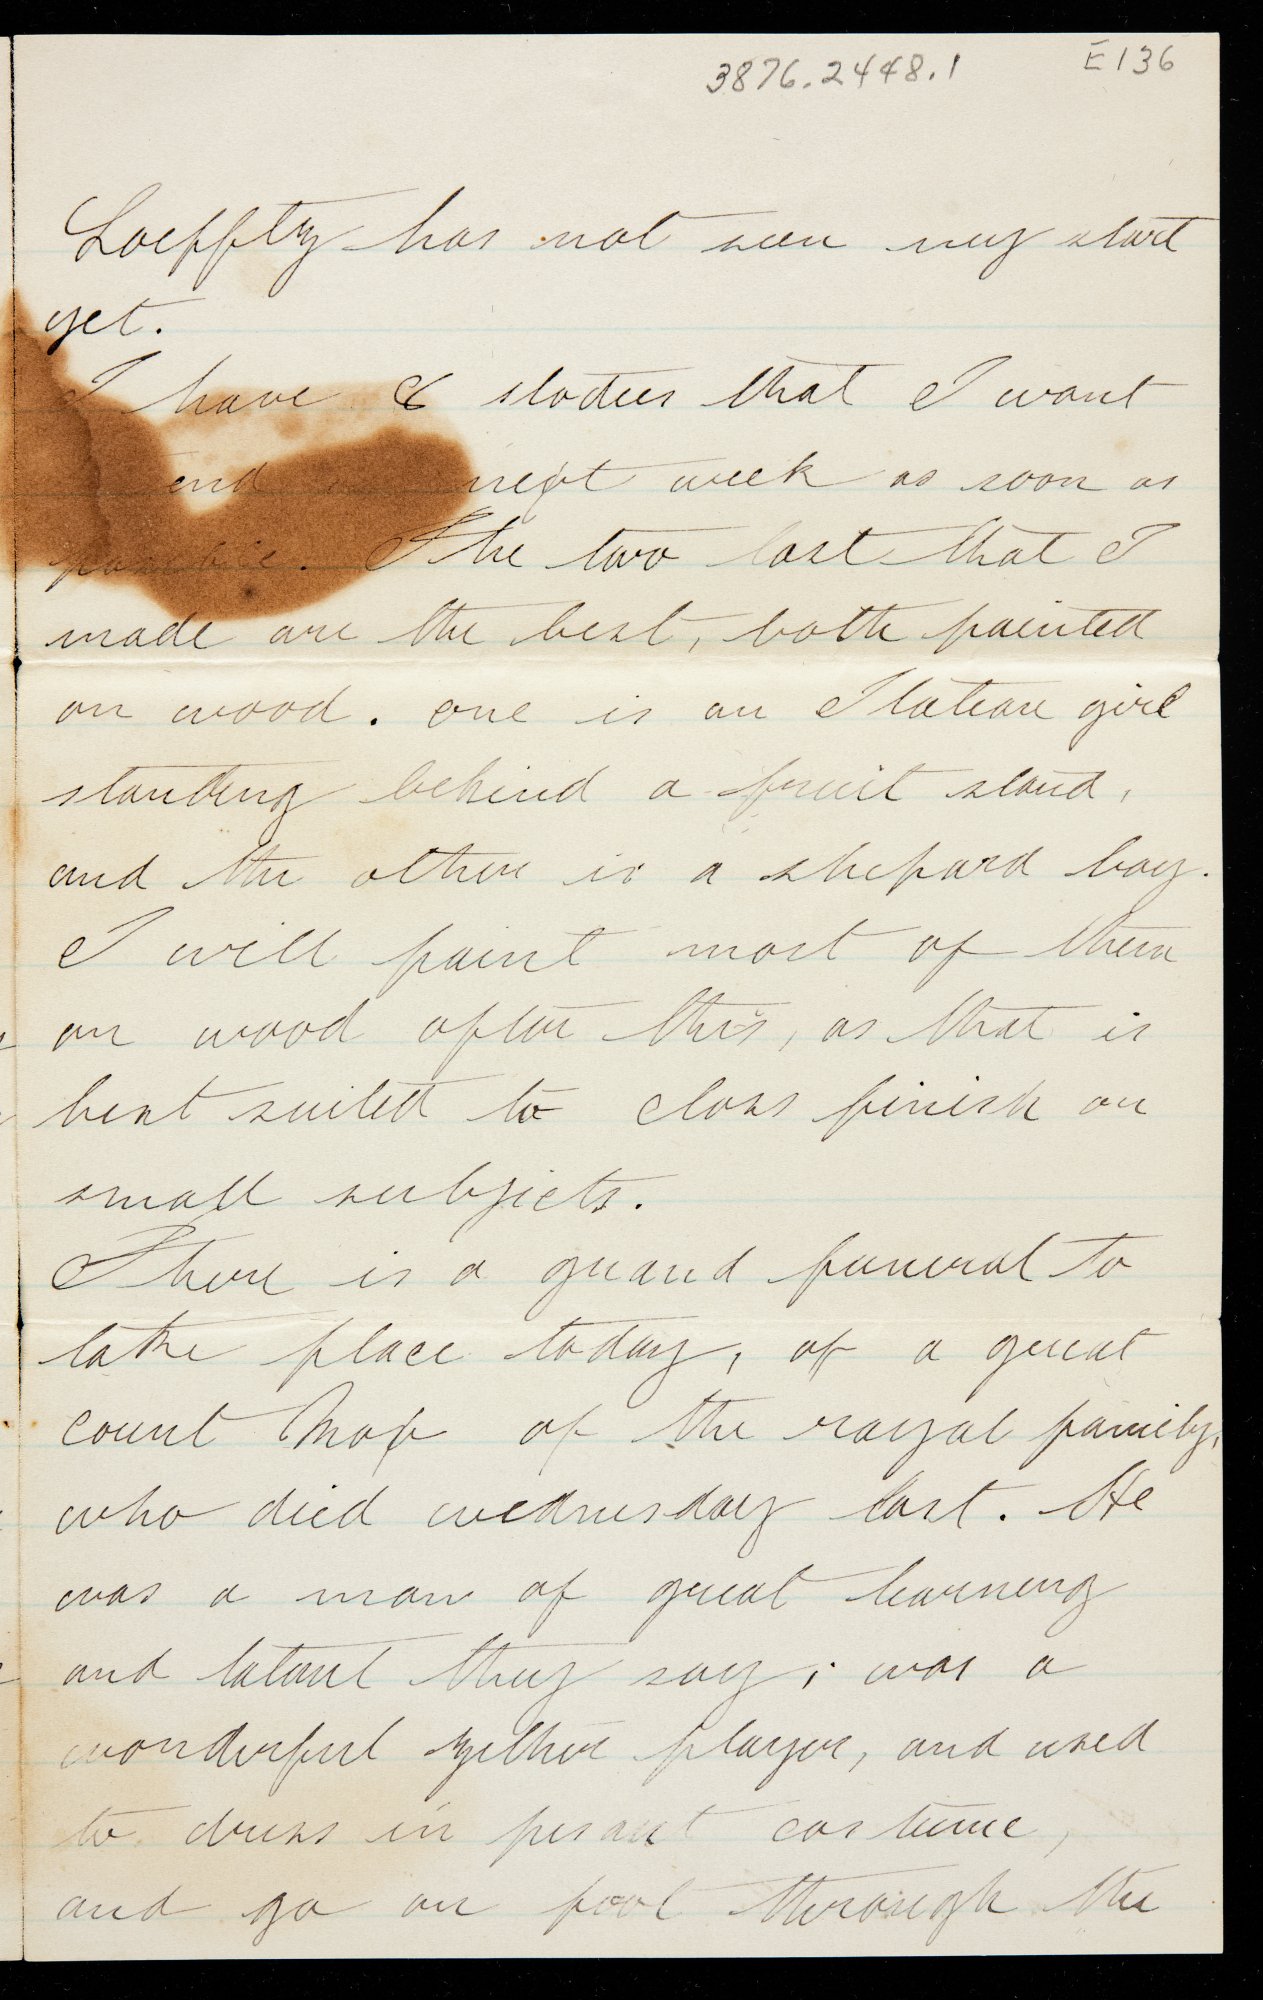 3876.2448.1 E136
Loefftz has not seen my start
yet.
I have 6 studies that I want
send next week as soon as
possible. The two last that I
made are the best, both painted
on wood. one is an Italian girl
standing behind a fruit stand,
and the other is a shepard boy.
I will paint most of them
on wood after this, as that is
best suited to close finish on
small subjects.
There is a grand funeral to
take place today, of a great
count Max of the royal family,
who died wednesday last. He
was a man of great learning
and talant they say; was a
wonderful zyther player, and used
to dress in pesant costume,
and go on foot through the